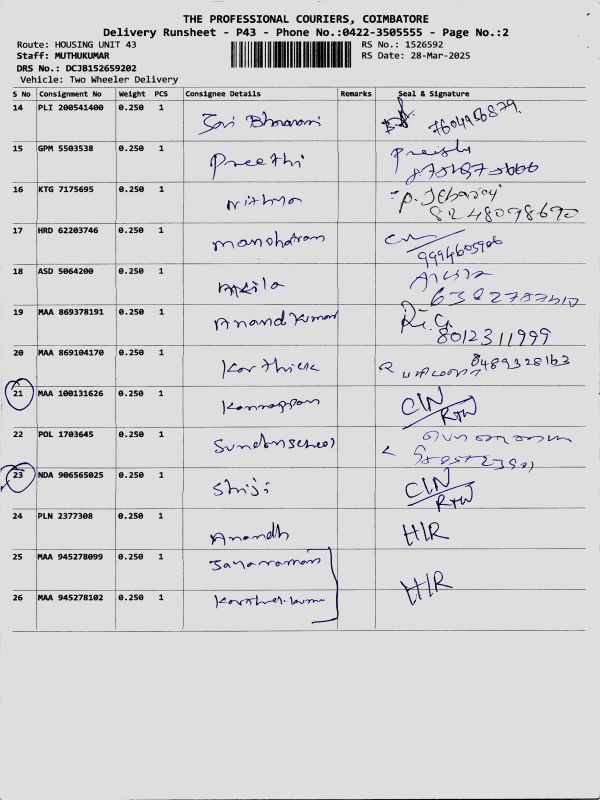 THE PROFESSIONAL COURIERS, COIMBATORE
Delivery Runsheet - P43 - Phone No.:0422-3505555 - Page No.:2
Route: HOUSING UNIT 43 RS No.: 1526592
Staff: MUTHUKUMAR RS Date: 28-Mar-2025
DRS No.: DCJB152659202
Vehicle: Two Wheeler Delivery
S No Consignment No Weight PCS Consignee Details Remarks Seal & Signature
14 PLI 200541400 0.250 1 7604956879
15 GPM 5503538 0.250 1 Preethi
16 KTG 7175695 0.250 1 Nithya 8248098690
17 HRD 62203746 0.250 1 Manoharan 9994605906
18 ASD 5064200 0.250 1 Akila
19 MAA 869378191 0.250 1 Anand Kumar 8012311999
20 MAA 869104170 0.250 1 Karthick
21 MAA 100131626 0.250 1 Kannappan CIN
RTW
22 POL 1703645 0.250 1
23 NDA 906565025 0.250 1 Shiji CIN
RTW
24 PLN 2377308 0.250 1 Anandh HIR
25 MAA 945278099 0.250 1 Jayaraman
HIR
26 MAA 945278102 0.250 1